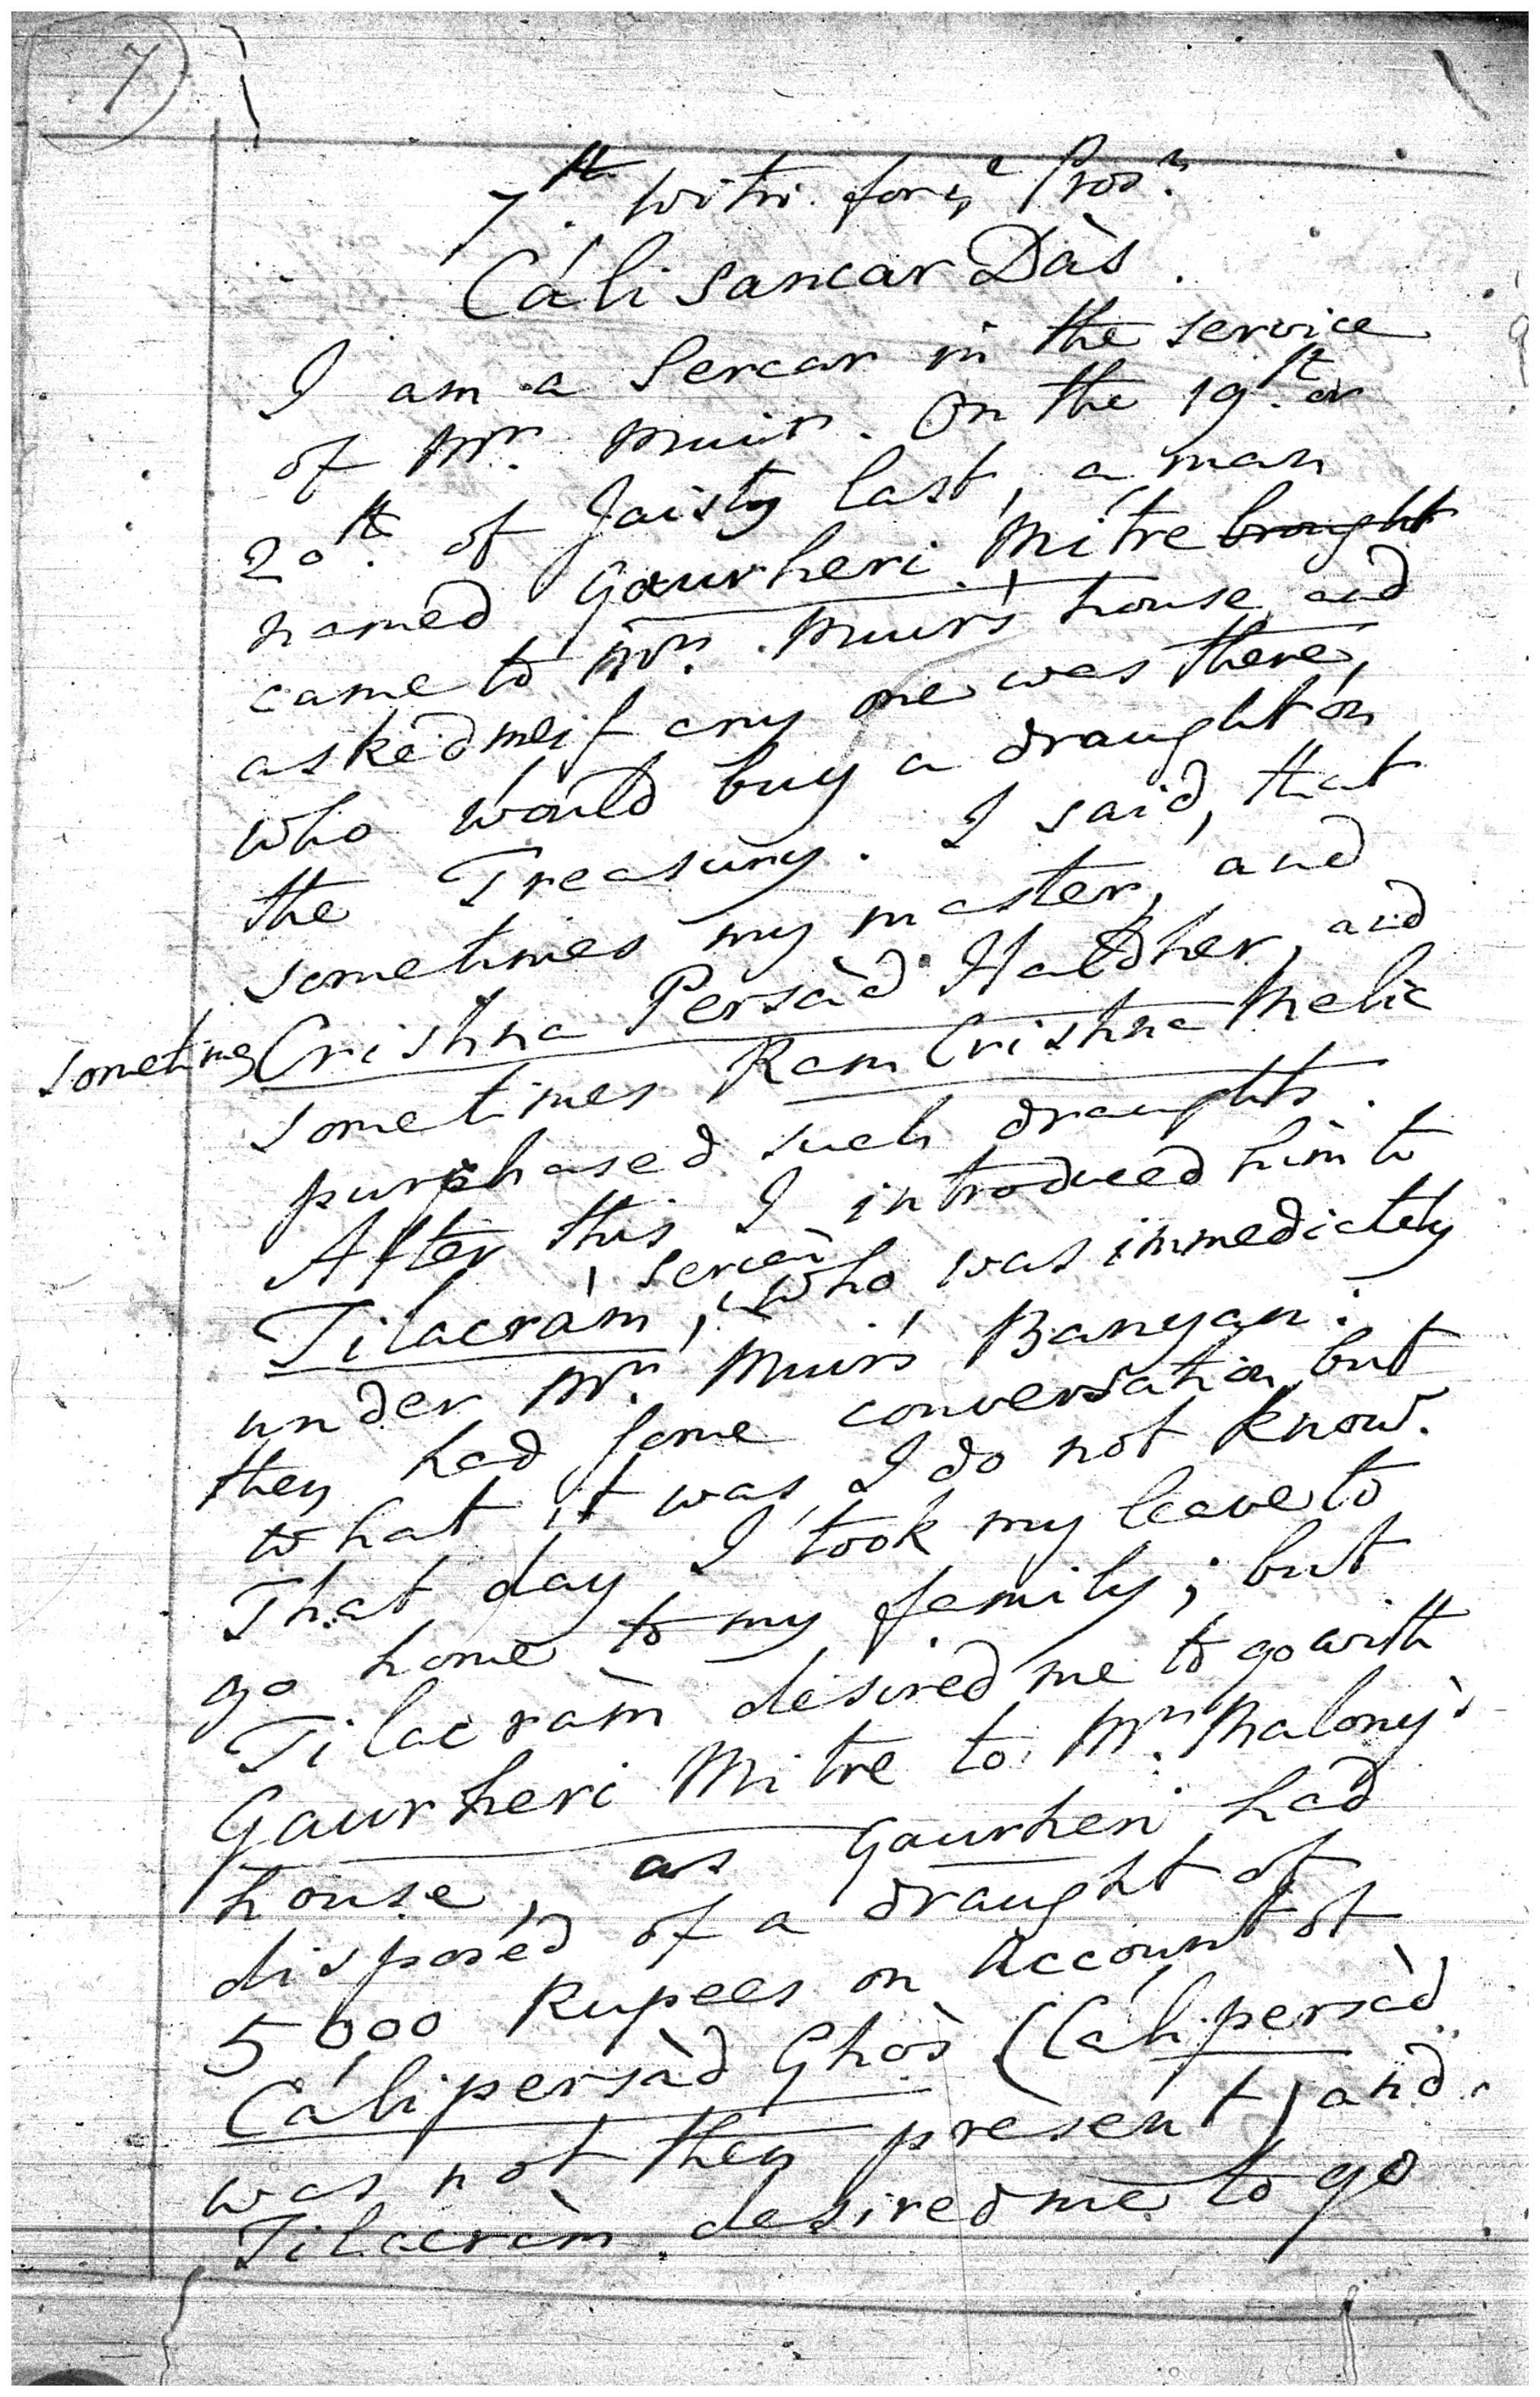 7
7th. Witn. for ye Prosn.
Cáli sancar Dàs.
I am a Sercar in the service
of Mr. Muir. On the 19th. or
20th. of Jaisty last, a man
named Gaurheri Mitre brought
came to Mr. Muir's house, and
asked me if any one was there,
who would buy a draught on
the Treasury. I said, that
sometimes my master, and
sometimes Crishna Persàd Haldher, and
sometimes Ram Crishna Melic
purchased such draughts.
After this I introduced him to
Tilacràm, sercar who was immediately
under Mr. Muir's Banyan.
they had some conversation, but
what it was, I do not know.
That day I took my leave to
go home to my family; but
Tilacràm desired me to go with
Gaurheri Mitre to Mr. Malony's
house, as Gaurheri had
disposed of a draught of
5000 Rupees on account of
Cálipersàd Ghòs (Cálipersàd
was not then present) and
Tilacràm desired me to go